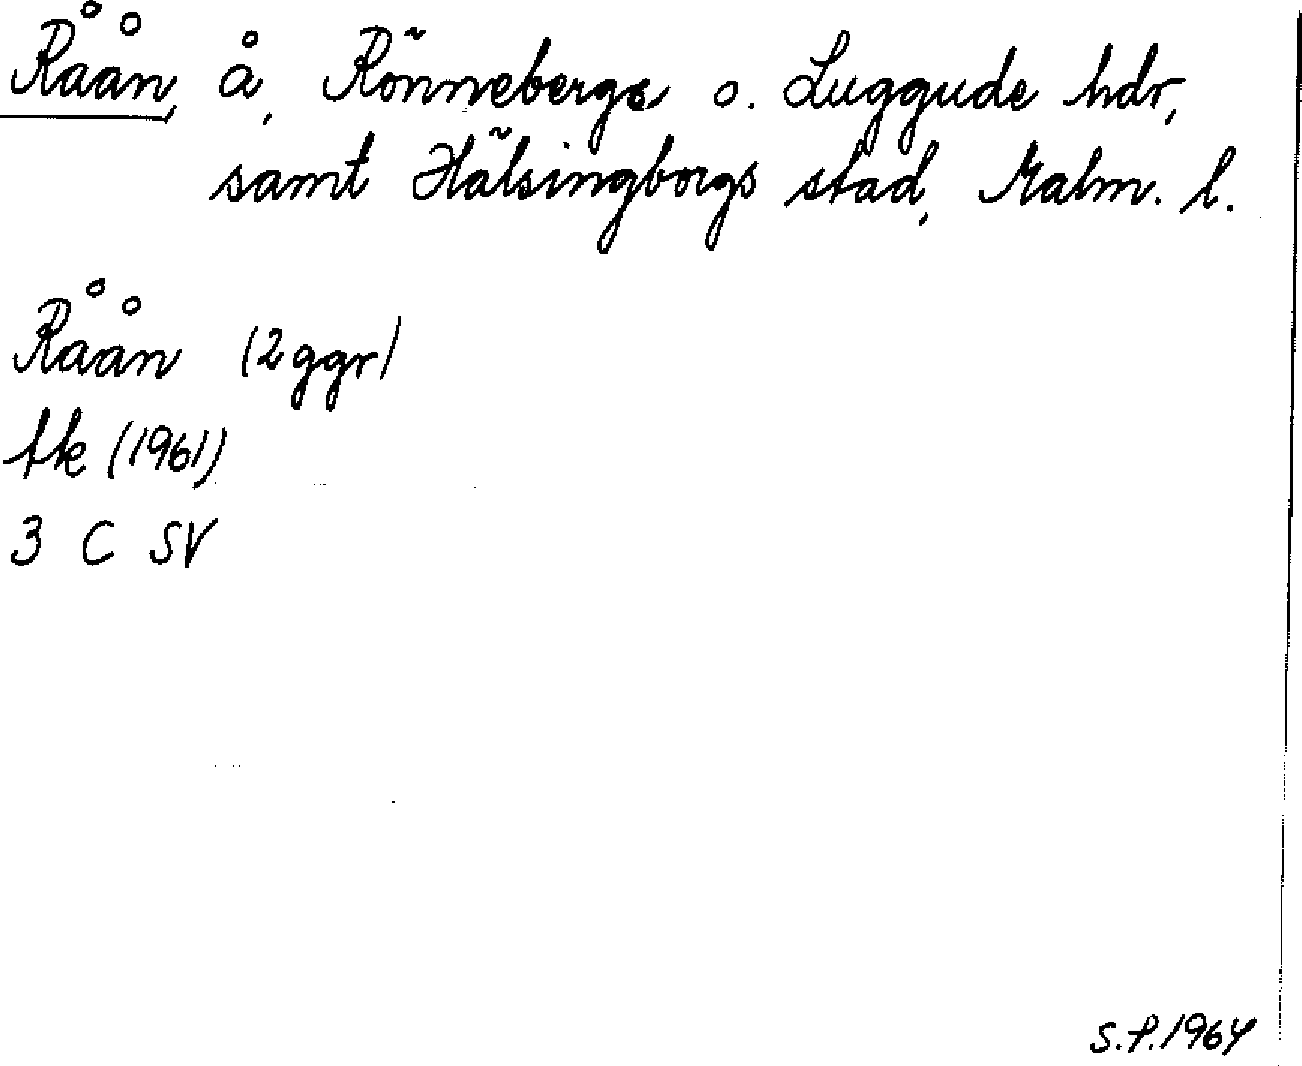 Råån, å, Rönnebergs o. Luggude hdr,
samt Hälsingborgs stad, Malm. l.
Råån (2 ggr)
tk (1961)
3 C SV
S.P. 1964